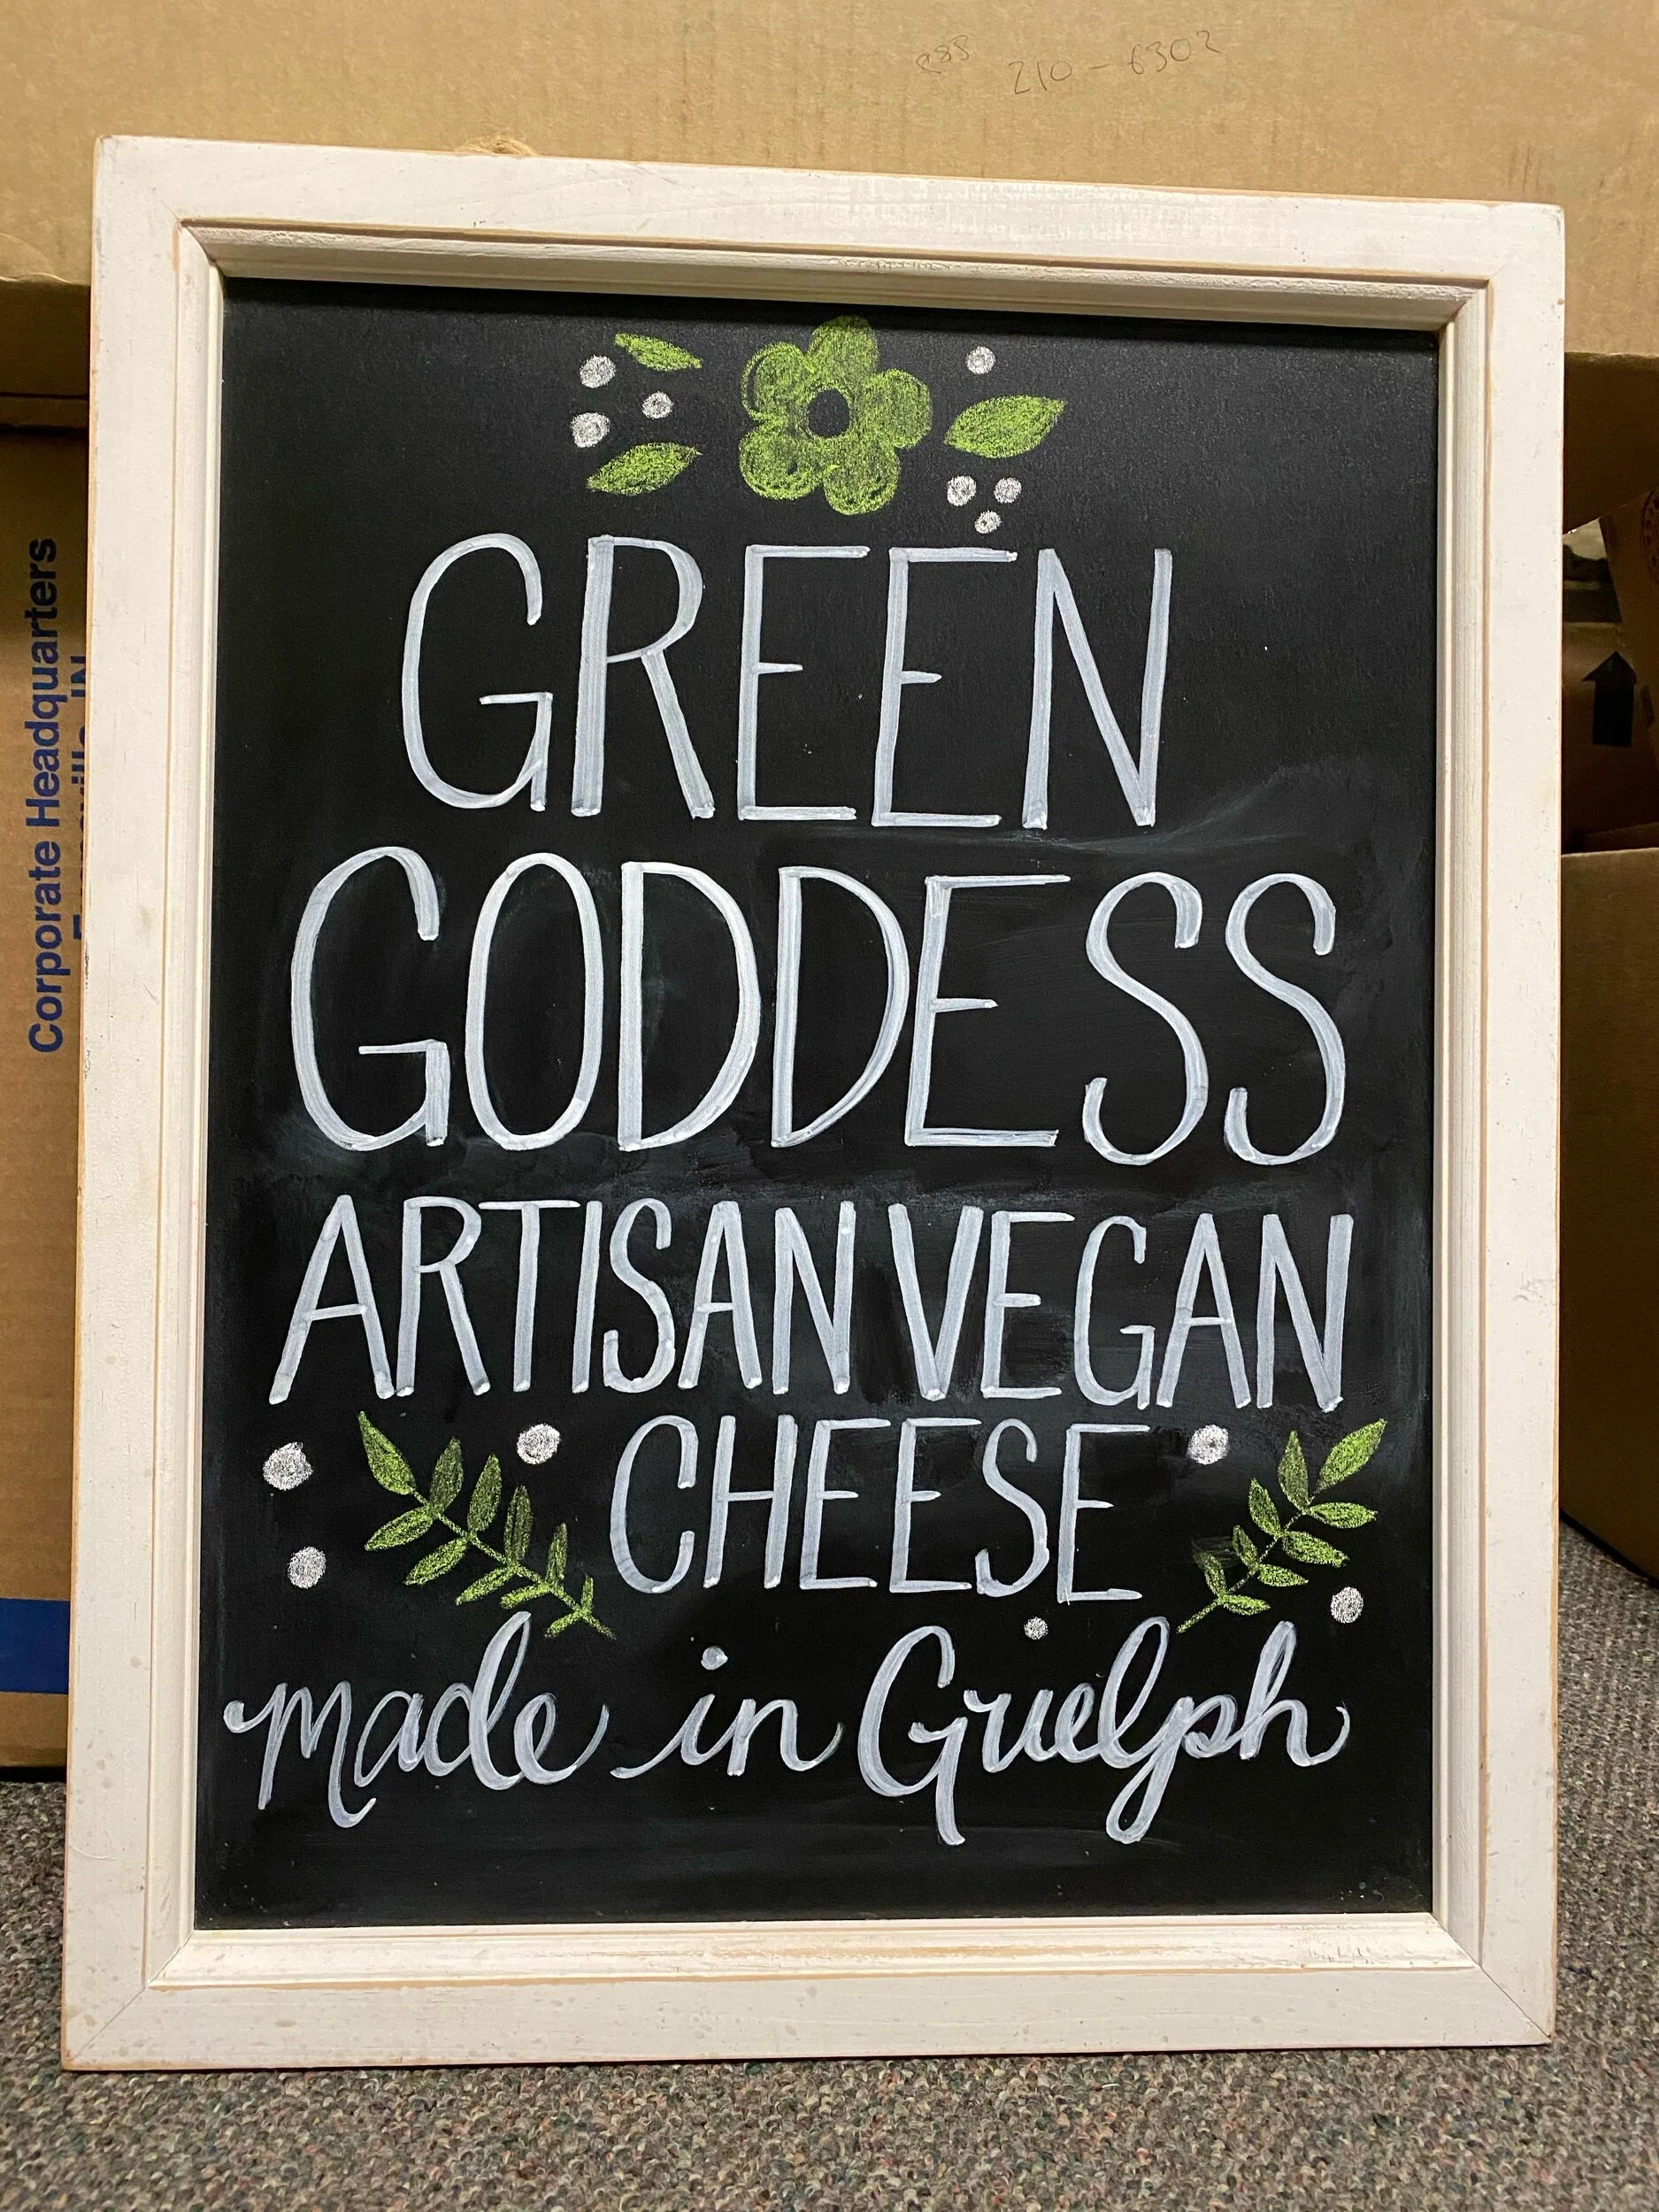 210-6302
GREEN
GODDESS
ARTISAN VEGAN
CHEESE
made in Guelph
Corporate Headquarters